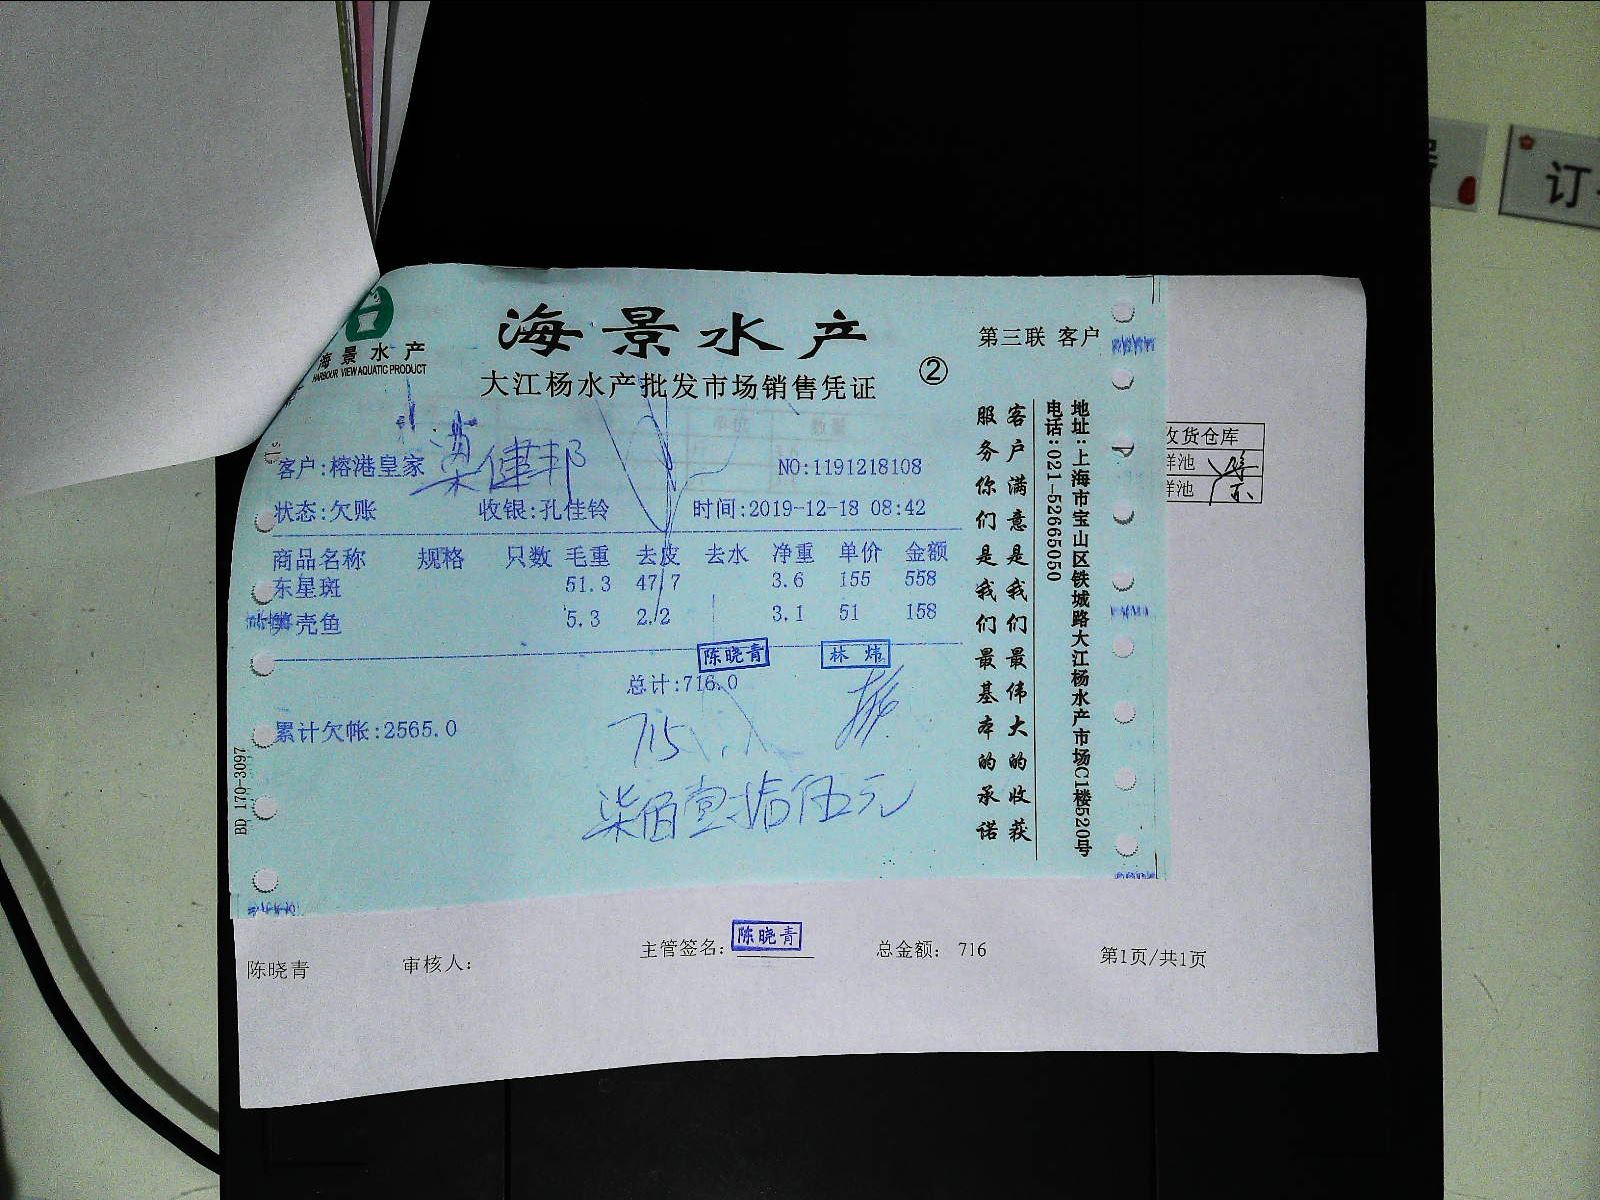 海景水产
HARBOUR VIEW AQUATIC PRODUCT
海景水产
第三联 客户
大江杨水产批发市场销售凭证
②
梁健邦
客户:榕港皇家
NO:1191218108
状态:欠账 收银:孔佳铃 时间:2019-12-18 08:42
商品名称 规格 只数 毛重 去皮 去水 净重 单价 金额
东星斑 51.3 47.7 3.6 155 558
壳鱼 5.3 2.2 3.1 51 158
陈晓青 林炜
总计:716.0
累计欠帐:2565.0
715
柒佰壹拾伍元
客户满意是我们最伟大的收获
服务你们是我们最基本的承诺
地址:上海市宝山区铁城路大江杨水产市场C1楼520号
电话:021-52665050
BD 170-3097
收货仓库
鲜池
鲜池
陈晓青 审核人: 主管签名: 陈晓青 总金额: 716 第1页/共1页
订